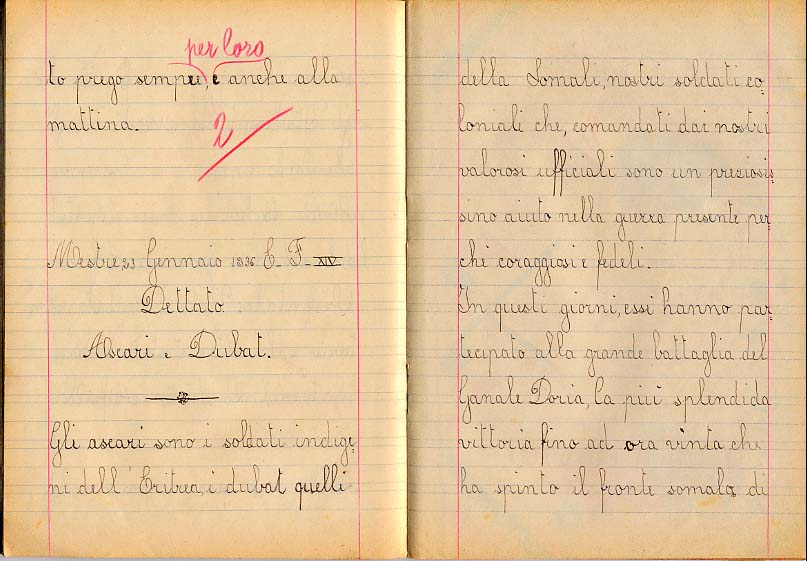 per loro
to prego sempre, e anche alla
mattina.
2
Mestre 23 Gennaio 1936 E. F. XIV
Dettato.
Ascari e Dubat.
Gli ascari sono i soldati indige-
ni dell'Eritrea, i dubat quelli
della Somali, nostri soldati co-
loniali che, comandati dai nostri
valorosi ufficiali sono un preziosis-
sino aiuto nella guerra presente per-
chè coraggiosi e fedeli.
In questi giorni, essi hanno par-
tecipato alla grande battaglia del
Ganale Doria, la più splendida
vittoria fino ad ora vinta che
ha spinto il fronte somalo di